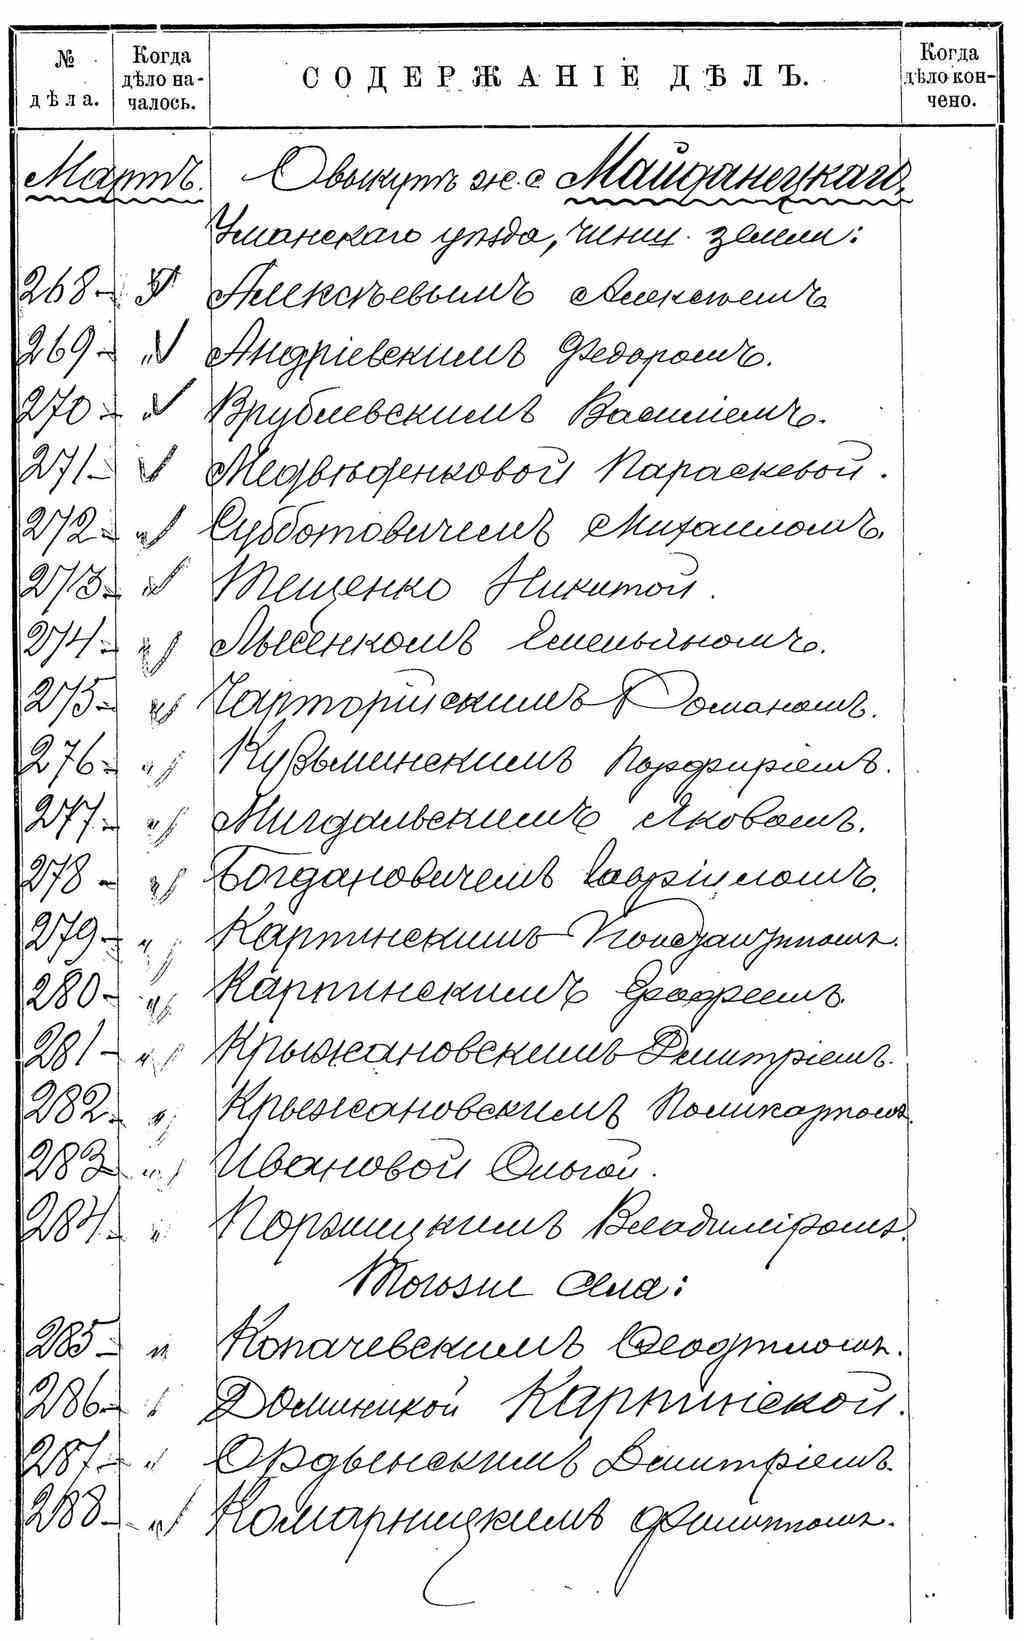 № дѣла. Когда дѣло началось. СОДЕРЖАНІЕ ДѢЛЪ. Когда дѣло кончено.
Мартъ. О выкупѣ ж. с Майданецкаго,
Уманскаго уѣзда, чинш. земли:
268 - Алексѣевымъ Алексѣемъ
269 - " Андріевскимъ Федоромъ.
270 - " Врублевскимъ Василіемъ.
271 - " Медвѣденковой Параскевой.
272 - " Субботовичемъ Михаиломъ.
273 - " Тещенко Никитой.
274 - " Лысенкомъ Емельяномъ.
275 - " Чарторійскимъ Романомъ.
276 - " Кузьминскимъ Порфиріемъ.
277 - " Мигдальскимъ Яковомъ.
278 - " Богдановичемъ Гавріиломъ.
279 - " Карпинскимъ Константиномъ.
280 - " Карпинскимъ Ерофеемъ.
281 - " Крыжановскимъ Дмитріемъ.
282 - " Крыжановскимъ Поликарпомъ.
283 " Ивановой Ольгой.
284 - " Поржицкимъ Владиміромъ.
Тогоже села:
285 - " Копачевскимъ Феофиломъ.
286 - " Доминикой Карпинской.
287 - " Ордынскимъ Дмитріемъ.
288 - " Комарницкимъ Филиппомъ.